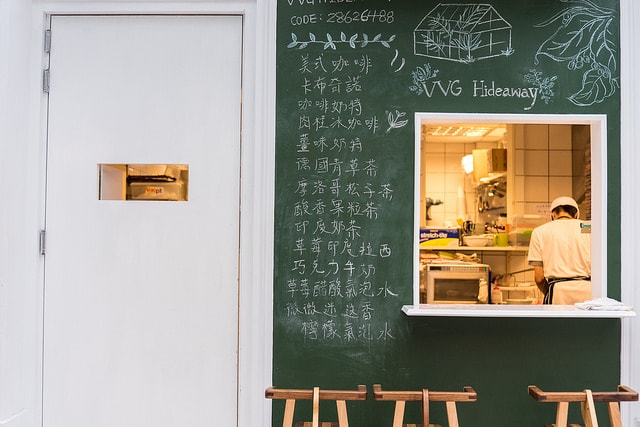 CODE: 28626488
VVG Hideaway
美式咖啡
卡布奇諾
咖啡奶特
肉桂冰咖啡
薑味奶特
德國青草茶
摩洛哥松子茶
酸香果粒茶
印度奶茶
草莓印度拉西
巧克力牛奶
草莓醋酸氣泡水
微微迷迭香
檸檬氣泡水
stretch-tite